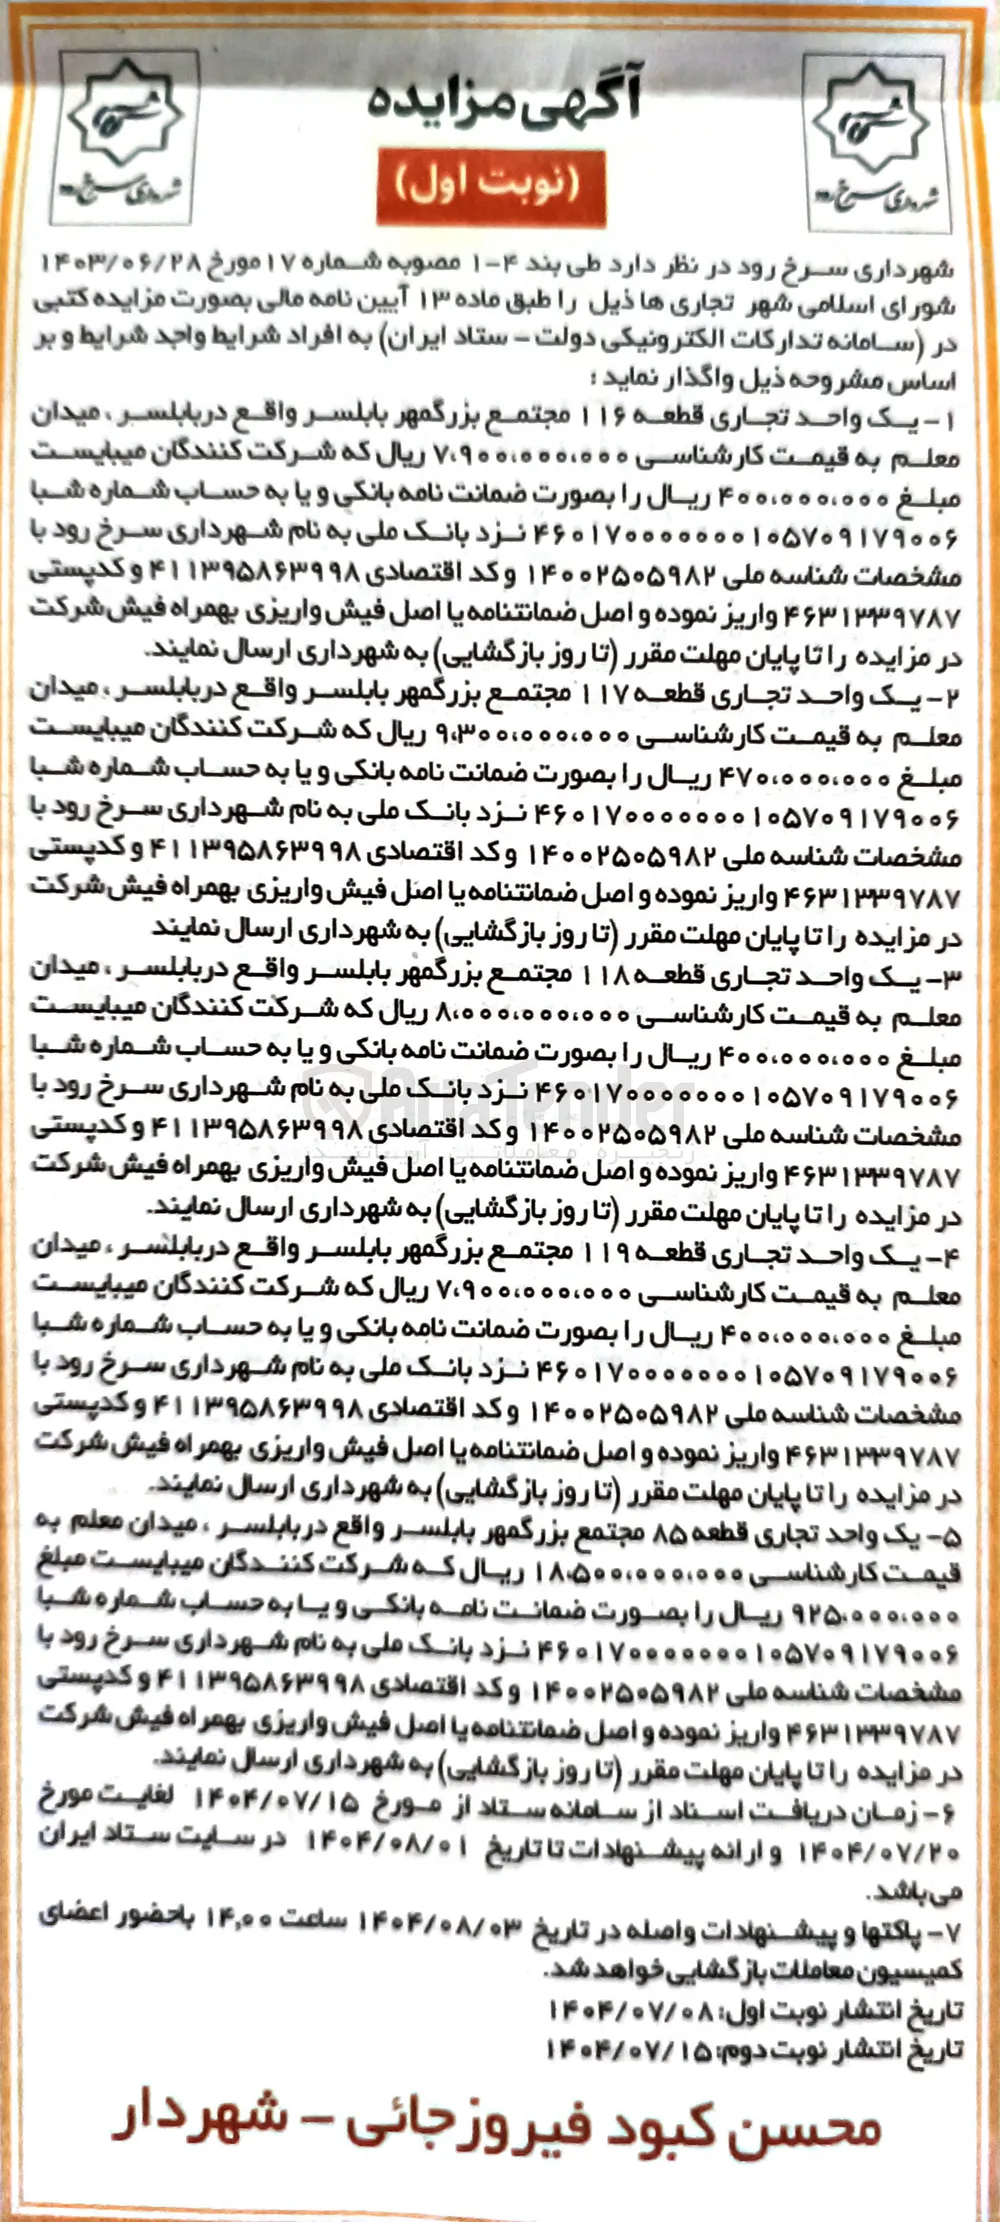 آگهی مزایده
(نوبت اول)
شهرداری سرخ رود
شهرداری سرخ رود
شهرداری سرخ رود در نظر دارد طی بند ۴-۱ مصوبه شماره ۱۷مورخ ۱۴۰۳/۰۶/۲۸
شورای اسلامی شهر تجاری ها ذیل را طبق ماده ۱۳ آیین نامه مالی بصورت مزایده کتبی
در (سامانه تدارکات الکترونیکی دولت - ستاد ایران) به افراد شرایط واجد شرایط و بر
اساس مشروحه ذیل واگذار نماید :
۱- یک واحد تجاری قطعه ۱۱۶ مجتمع بزرگمهر بابلسر واقع دربابلسر ، میدان
معلم به قیمت کارشناسی ۷،۹۰۰،۰۰۰،۰۰۰ ریال که شرکت کنندگان میبایست
مبلغ ۴۰۰،۰۰۰،۰۰۰ ریال را بصورت ضمانت نامه بانکی و یا به حساب شماره شبا
۴۶۰۱۷۰۰۰۰۰۰۰۱۰۵۷۰۹۱۷۹۰۰۶ نزد بانک ملی به نام شهرداری سرخ رود با
مشخصات شناسه ملی ۱۴۰۰۲۵۰۵۹۸۲ و کد اقتصادی ۴۱۱۳۹۵۸۶۳۹۹۸ و کدپستی
۴۶۳۱۳۳۹۷۸۷ واریز نموده و اصل ضمانتنامه یا اصل فیش واریزی بهمراه فیش شرکت
در مزایده را تا پایان مهلت مقرر (تا روز بازگشایی) به شهرداری ارسال نمایند.
۲- یک واحد تجاری قطعه ۱۱۷ مجتمع بزرگمهر بابلسر واقع دربابلسر ، میدان
معلم به قیمت کارشناسی ۹،۳۰۰،۰۰۰،۰۰۰ ریال که شرکت کنندگان میبایست
مبلغ ۴۷۰،۰۰۰،۰۰۰ ریال را بصورت ضمانت نامه بانکی و یا به حساب شماره شبا
۴۶۰۱۷۰۰۰۰۰۰۰۱۰۵۷۰۹۱۷۹۰۰۶ نزد بانک ملی به نام شهرداری سرخ رود با
مشخصات شناسه ملی ۱۴۰۰۲۵۰۵۹۸۲ و کد اقتصادی ۴۱۱۳۹۵۸۶۳۹۹۸ و کدپستی
۴۶۳۱۳۳۹۷۸۷ واریز نموده و اصل ضمانتنامه یا اصل فیش واریزی بهمراه فیش شرکت
در مزایده را تا پایان مهلت مقرر (تا روز بازگشایی) به شهرداری ارسال نمایند
۳- یک واحد تجاری قطعه ۱۱۸ مجتمع بزرگمهر بابلسر واقع دربابلسر ، میدان
معلم به قیمت کارشناسی ۸،۰۰۰،۰۰۰،۰۰۰ ریال که شرکت کنندگان میبایست
مبلغ ۴۰۰،۰۰۰،۰۰۰ ریال را بصورت ضمانت نامه بانکی و یا به حساب شماره شبا
۴۶۰۱۷۰۰۰۰۰۰۰۱۰۵۷۰۹۱۷۹۰۰۶ نزد بانک ملی به نام شهرداری سرخ رود با
AriaTender
مشخصات شناسه ملی ۱۴۰۰۲۵۰۵۹۸۲ و کد اقتصادی ۴۱۱۳۹۵۸۶۳۹۹۸ و کدپستی
زنجیره معاملاتی آریاتندر
۴۶۳۱۳۳۹۷۸۷ واریز نموده و اصل ضمانتنامه یا اصل فیش واریزی بهمراه فیش شرکت
در مزایده را تا پایان مهلت مقرر (تا روز بازگشایی) به شهرداری ارسال نمایند.
۴- یک واحد تجاری قطعه ۱۱۹ مجتمع بزرگمهر بابلسر واقع دربابلسر ، میدان
معلم به قیمت کارشناسی ۷،۹۰۰،۰۰۰،۰۰۰ ریال که شرکت کنندگان میبایست
مبلغ ۴۰۰،۰۰۰،۰۰۰ ریال را بصورت ضمانت نامه بانکی و یا به حساب شماره شبا
۴۶۰۱۷۰۰۰۰۰۰۰۱۰۵۷۰۹۱۷۹۰۰۶ نزد بانک ملی به نام شهرداری سرخ رود با
مشخصات شناسه ملی ۱۴۰۰۲۵۰۵۹۸۲ و کد اقتصادی ۴۱۱۳۹۵۸۶۳۹۹۸ و کدپستی
۴۶۳۱۳۳۹۷۸۷ واریز نموده و اصل ضمانتنامه یا اصل فیش واریزی بهمراه فیش شرکت
در مزایده را تا پایان مهلت مقرر (تا روز بازگشایی) به شهرداری ارسال نمایند.
۵- یک واحد تجاری قطعه ۸۵ مجتمع بزرگمهر بابلسر واقع دربابلسر ، میدان معلم به
قیمت کارشناسی ۱۸،۵۰۰،۰۰۰،۰۰۰ ریال که شرکت کنندگان میبایست مبلغ
۹۲۵،۰۰۰،۰۰۰ ریال را بصورت ضمانت نامه بانکی و یا به حساب شماره شبا
۴۶۰۱۷۰۰۰۰۰۰۰۱۰۵۷۰۹۱۷۹۰۰۶ نزد بانک ملی به نام شهرداری سرخ رود با
مشخصات شناسه ملی ۱۴۰۰۲۵۰۵۹۸۲ و کد اقتصادی ۴۱۱۳۹۵۸۶۳۹۹۸ و کدپستی
۴۶۳۱۳۳۹۷۸۷ واریز نموده و اصل ضمانتنامه یا اصل فیش واریزی بهمراه فیش شرکت
در مزایده را تا پایان مهلت مقرر (تا روز بازگشایی) به شهرداری ارسال نمایند.
۶- زمان دریافت اسناد از سامانه ستاد از مورخ ۱۴۰۴/۰۷/۱۵ لغایت مورخ
۱۴۰۴/۰۷/۲۰ و ارائه پیشنهادات تا تاریخ ۱۴۰۴/۰۸/۰۱ در سایت ستاد ایران
می‌باشد.
۷- پاکتها و پیشنهادات واصله در تاریخ ۱۴۰۴/۰۸/۰۳ ساعت ۱۴,۰۰ باحضور اعضای
کمیسیون معاملات بازگشایی خواهد شد.
تاریخ انتشار نوبت اول: ۱۴۰۴/۰۷/۰۸
تاریخ انتشار نوبت دوم: ۱۴۰۴/۰۷/۱۵
محسن کبود فیروزجائی - شهردار